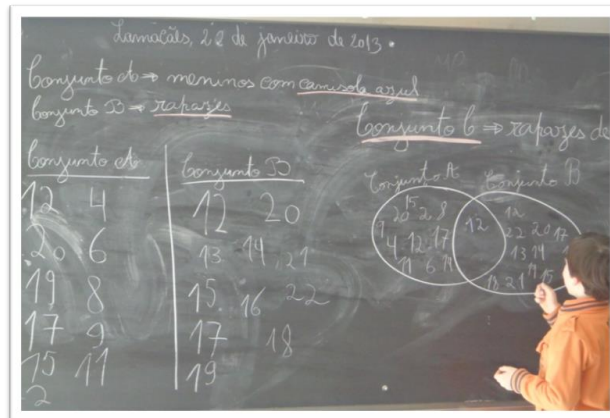 Lamaçães, 22 de janeiro de 2013.
Conjunto A ⇒ meninos com camisola azul
Conjunto B ⇒ rapazes
Conjunto C ⇒ rapazes de
Conjunto A
12 4
20 6
19 8
17 9
15 11
2
Conjunto B
12 20
13 14 21
15 16 22
17 18
19
Conjunto A Conjunto B
15
20 2 8
9 4 12 17
11 6 19
12
12
22 20 17
13 14
18 21 19 15